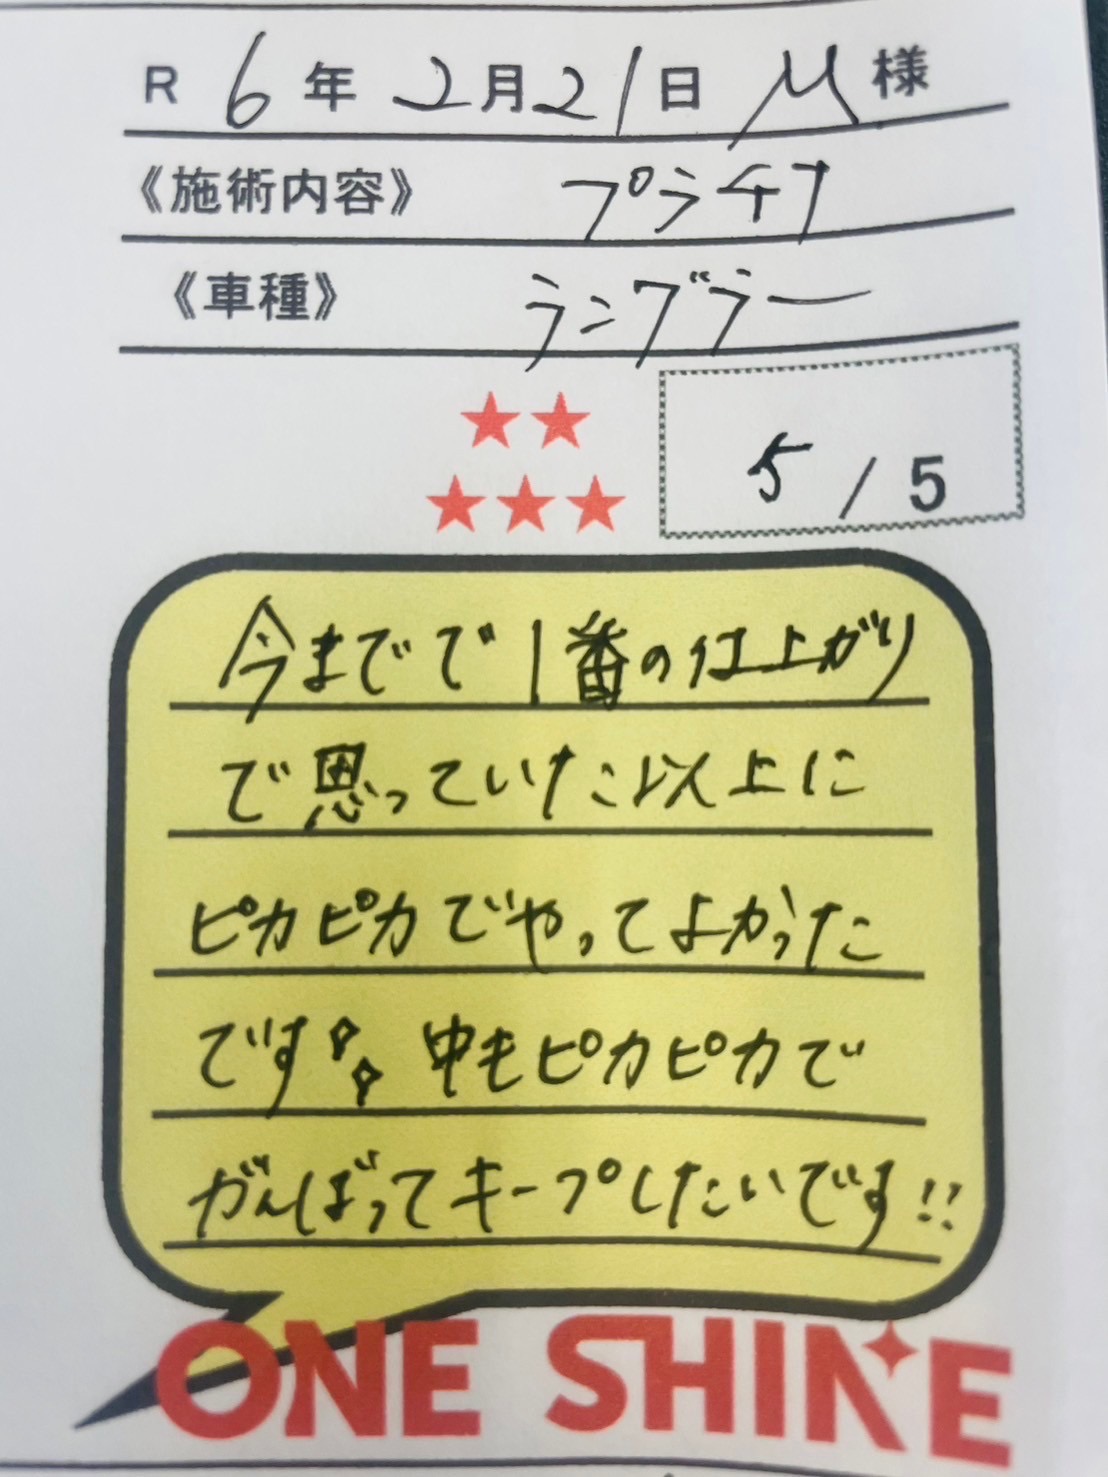 R 6年 2月21日 M様
《施術内容》 プラチナ
《車種》 ラングラー
5 / 5
今までで1番の仕上がり
で思っていた以上に
ピカピカでやってよかった
です 中もピカピカで
がんばってキープしたいです!!
ONE SHINE